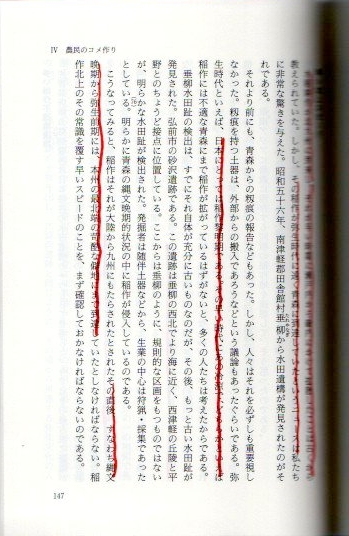 Ⅳ 農民のコメ作り
教えられていた。しかし、その稲作が弥生時代に遠く青森まで到達していたというニュースは私たち
に非常な驚きを与えた。昭和五十六年、南津軽郡田舎館村垂柳から水田遺構が発見されたのがそ
れである。
それより前にも、青森からの籾痕の報告などもあった。しかし、人々はそれを必ずしも重要視し
なかった。籾痕を持つ土器は、外部からの搬入であろうなどという議論もあったぐらいである。弥
生時代といえば、日本にとっては稲作黎明期である
稲作には不適な青森にまで稲作が拡がっているはずがないと、多くの人たちは考えたからである。
垂柳水田趾の検出は、すでにそれ自体が充分に古いものなのだが、その後、もっと古い水田趾が
発見された。弘前市の砂沢遺跡である。この遺跡は垂柳の西北でより海に近く、西津軽の丘陵と平
野とのちょうど接点に位置している。ここからは垂柳のように、規則的な区画をもつものではない
が、明らかな水田趾が検出された。発掘者は随伴土器などから、生業の中心は狩猟・採集であった
としている。明らかに青森の縄文晩期的状況の中に稲作が侵入しているのである。
こうなってみると、稲作はそれが大陸から九州にもたらされたとされたその直後、すなわち縄文
晩期から弥生前期には、本州の最北端の苛酷な僻地にまで到達していたとしなければならない。稲
作北上のその常識を覆す早いスピードのことを、まず確認しておかなければならないのである。
147